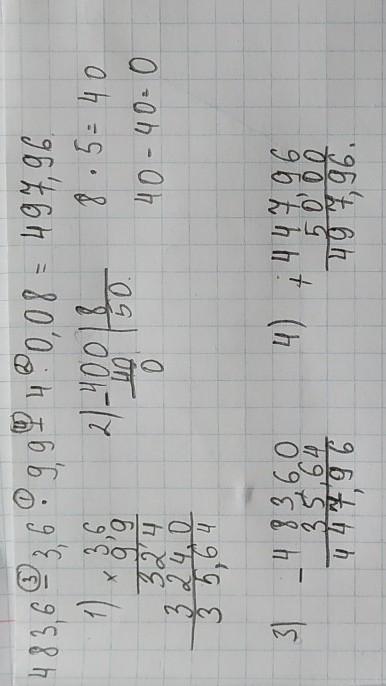 483,6 ③- 3,6 ①· 9,9 ④+ 4 ②: 0,08 = 497,96.
1) × 3,6
9,9
324
3240
35,64
2) - 400 | 8
40 | 50.
0
8 · 5 = 40
40 - 40 = 0
3) - 483,60
35,64
447,96
4) + 447,96
50,00
497,96.